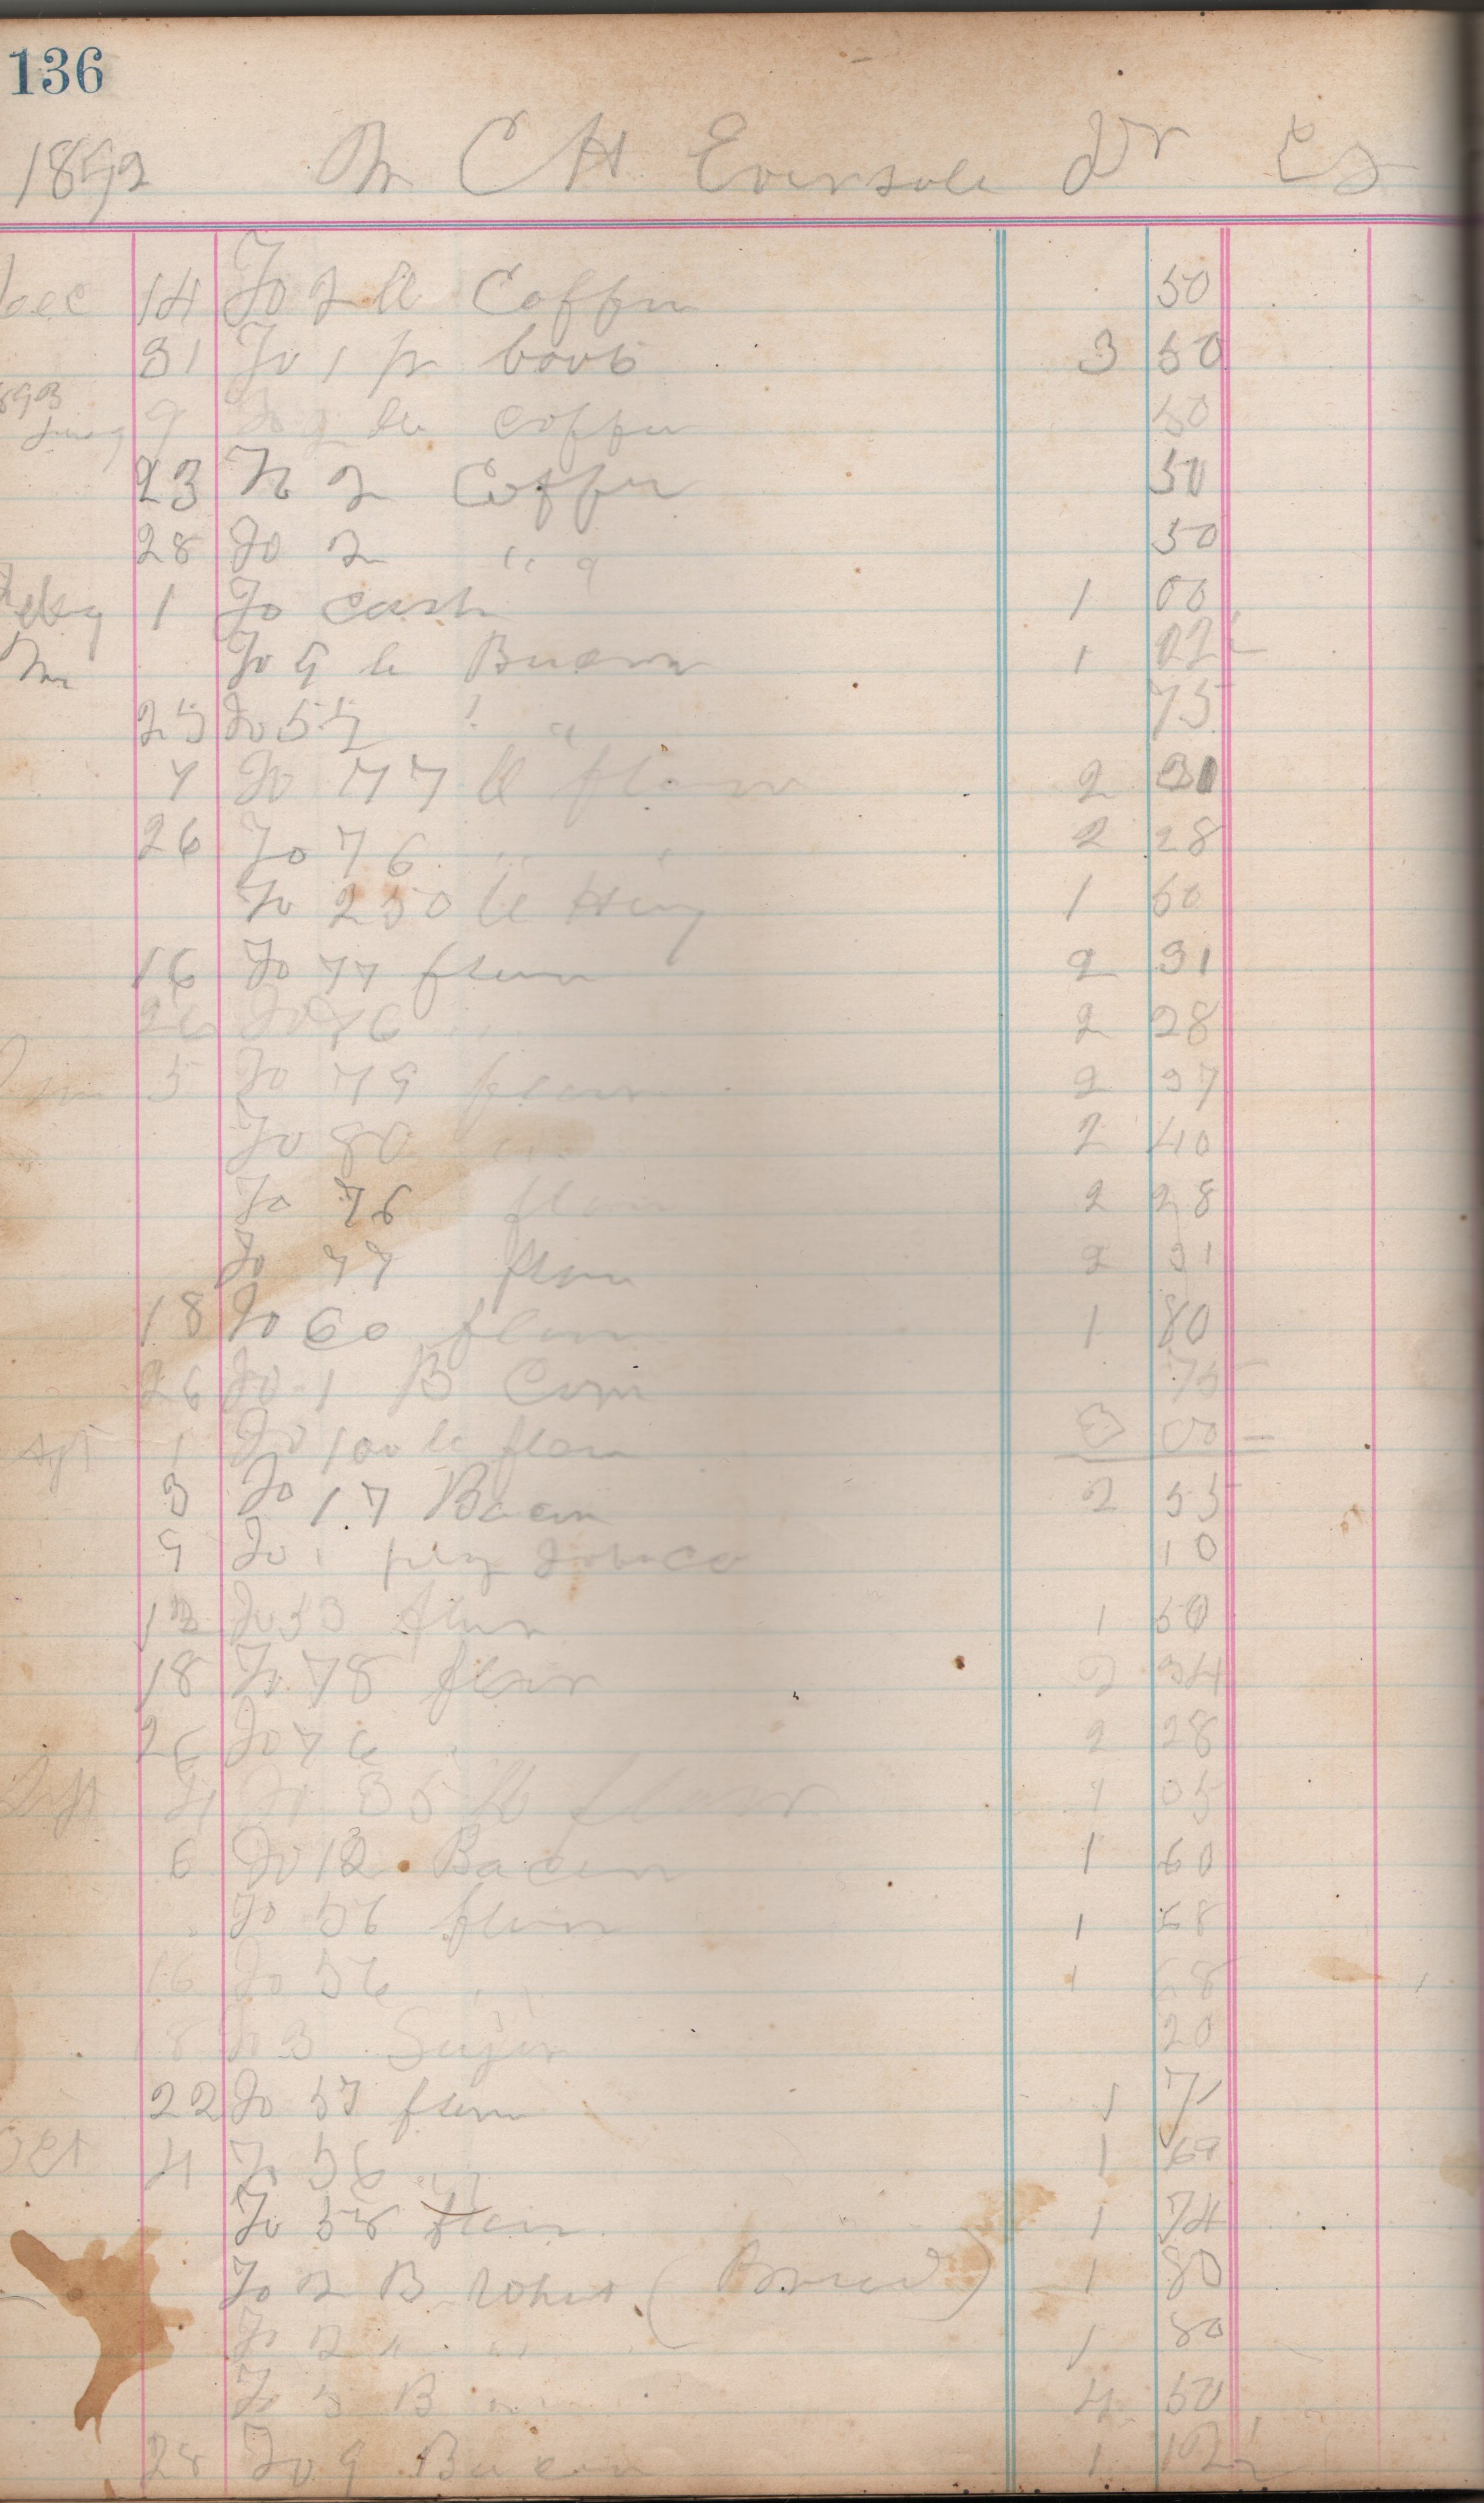 136
1892 Mr C H Eversole Dr Cr
Dec 14 To 2 lb Coffee 50
31 To 1 pr boots 3 50
1893
9 To 2 lb coffee 50
23 To 2 Coffee 50
28 To 2 " " 50
1 To cash 1 00
To 9 lb Bacon 1
25 To 5 " 75
7 To 77 lb flour 2 31
26 To 76 " " 2 28
To 250 lb Hay 1 50
16 To 77 flour 2 31
26 To 76 " 2 28
5 To 79 flour 2 37
To 80 " 2 40
To 76 flour 2 28
To 77 flour 2 31
18 To 60 flour 1 80
26 To 1 B Corn 75
1 To 100 lb flour 3 00
3 To 17 Bacon 2 55
9 To 1 plug Tobacco 10
To 53 flour 1 50
18 To 78 flour 2 34
26 To 76 " 2 28
4 To 35 lb flour 1 05
6 To Bacon 1 60
" To 56 flour 1 68
16 To 56 " 1 68
8 To 3 Sugar 20
22 To 57 flour 1 71
Oct 4 To 56 " 1
To 58 flour 1 74
To 2 B Wheat ( ) 1 80
To 2 " " 1 80
To 5 B " 4 50
28 To 9 Bacon 1 12½